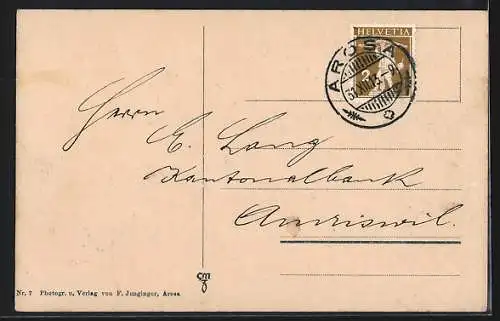 HELVETIA
2
AROSA
Herrn
E. Lang
Kantonalbank
Amriswil.
cm
Nr. 7 Photogr. u. Verlag von F. Junginger, Arosa